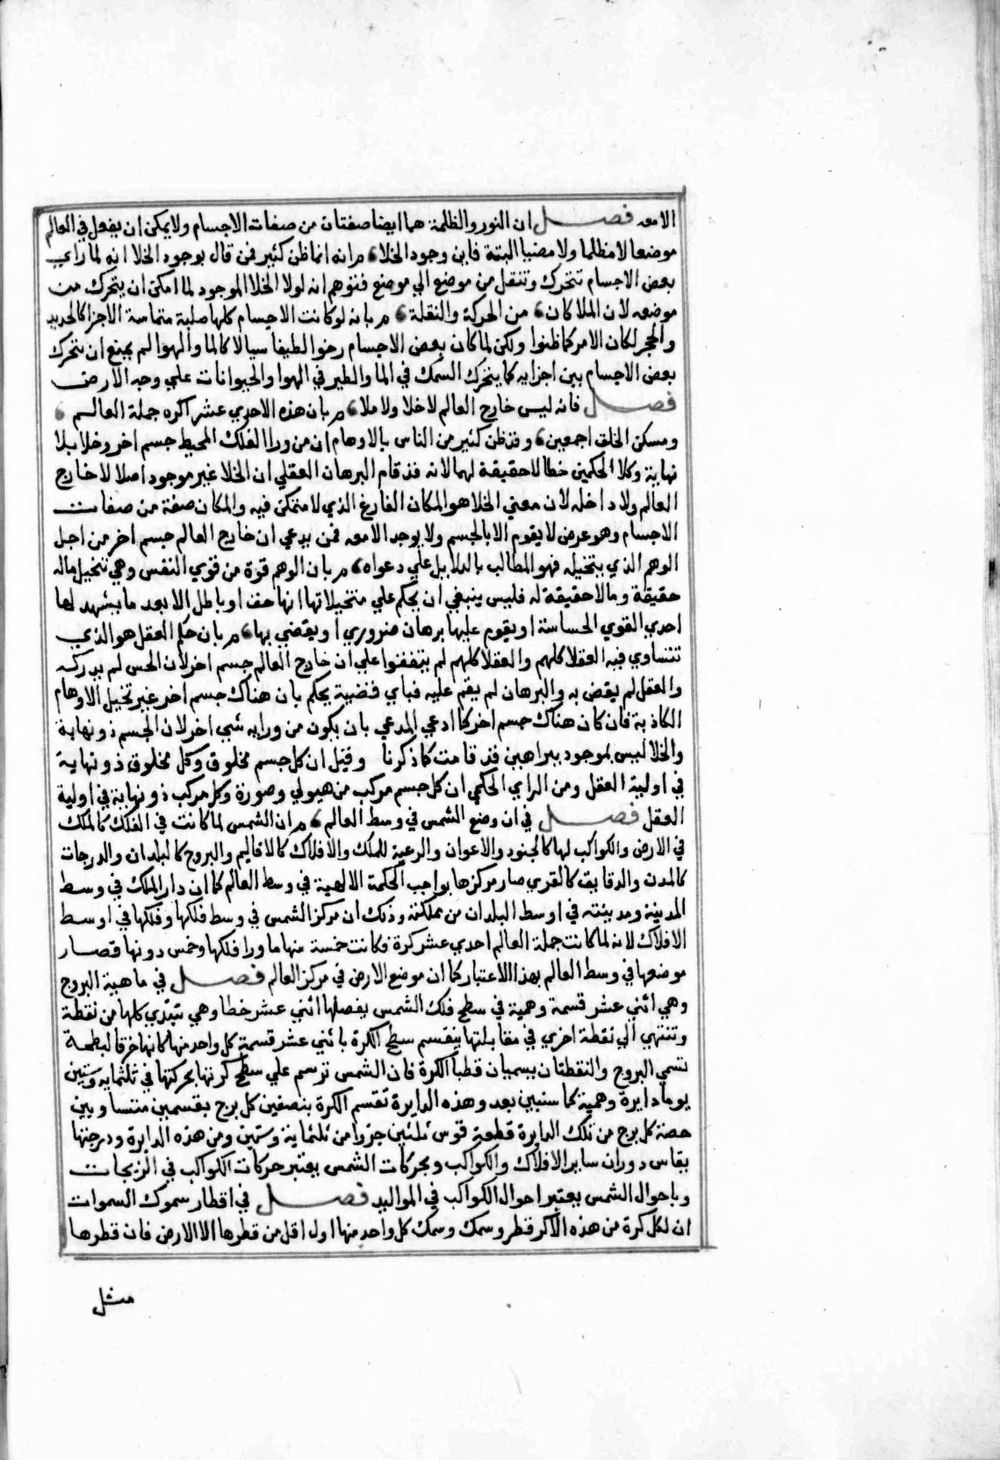 الا معه فصل ان النور والظلمة هما ايضا صفتان من صفات الاجسام ولا يمكن ان يعقل في العالم
موضعا لا مظلما ولا مضيا البتة فاين وجود الخلاء م انه انما ظن كثير فمن قال بوجود الخلا انه لما راي
بعض الاجسام تتحرك وتنتقل من موضع الي موضع فتوهم انه لولا الخلا الموجود لما امكن ان يتحرك من
موضعه لان الملا كان من الحركة والنقلة م بانه لو كانت الاجسام كلها صلبة متماسة الاجزا كالحديد
والحجر لكان الامر كما ظنوا ولكن لما كان بعض الاجسام رخوا لطيفا سيالا كالما والهوا لم يمنع ان يتحرك
بعض الاجسام بين اجزايه كما يتحرك السمك في الما والطير في الهوا والحيوانات علي وجه الارض
فصل فانه ليس خارج العالم لا خلا ولا ملا م بان هذه الاحدي عشر اكره جملة العالم
ومسكن الخلق اجمعين وقد ظن كثير من الناس بالاوهام ان من ورا الفلك المحيط جسم اخر وخلا بلا
نهاية وكلا الحكمين خطا لا حقيقة لهما لانه قد قام البرهان العقلي ان الخلا غير موجود اصلا لا خارج
العالم ولا داخله لان معني الخلا هو المكان الفارغ الذي لا متمكن فيه والمكان صفة من صفات
الاجسام وهو عرض لا يقوم الا بالجسم ولا يوجد الا معه فمن يدعي ان خارج العالم جسم اخر من اجل
الوهم الذي يتخيله فهو المطالب بالدلايل علي دعواه م بان الوهم قوة من قوي النفس وهي تتخيل ماله
حقيقة وما لا حقيقة له فليس ينبغي ان يحكم علي متخيلاتها انها حق او باطل الا بعد ما يشهد لها
احدي القوي الحساسة او يقوم عليها برهان ضروري او يقضي بها م بان حكم العقل هو الذي
تتساوي فيه العقلا كلهم والعقلا كلهم لم يتفقوا علي ان خارج العالم جسم اخر لان الحس لم يدركه
والعقل لم يقض به والبرهان لم يقم عليه فباي قضية يحكم بان هناك جسم اخر غير تخيل الاوهام
الكاذبة فان كان هناك جسم اخر كما ادعي المدعي بان يكون من ورايه شي اخر لان الجسم ذو نهاية
والخلا ليس بموجود ببراهين قد قامت كما ذكرنا وقيل ان كل جسم مخلوق وكل مخلوق ذو نهاية
في اولية العقل ومن الراي الحكمي ان كل جسم مركب من هيولي وصورة وكل مركب ذو نهاية في اولية
العقل فصل في ان وضع الشمس في وسط العالم م ان الشمس لما كانت في الفلك كالملك
في الارض والكواكب لها كالجنود والاعوان والرعية للملك والافلاك كالاقاليم والبروج كالبلدان والدرجات
كالمدن والدقايق كالقري صار مركزها بواجب الحكمة الالهية في وسط العالم كما ان دار الملك في وسط
المدينة ومدينته في اوسط البلدان من مملكته وذلك ان مركز الشمس في وسط فلكها وفلكها في اوسط
الافلاك لانه لما كانت جملة العالم احدي عشر كرة فكانت خمسة منها ما ورا فلكها وخمس دونها فصار
موضعها في وسط العالم بهذا الاعتبار كما ان موضع الارض في مركز العالم فصل في ماهية البروج
وهي اثني عشر قسمة وهمية في سطح فلك الشمس يفصلها اثني عشر خطا وهي تبتدي كلها من نقطة
وتنتهي الي نقطة اخري في مقابلتها ينقسم سطح الكرة باثني عشر قسمة كل واحد منها كانها خرقا لبطيخة
تسمي البروج والنقطتان يسميان قطبا الكرة فان الشمس ترسم علي سطح كرتها بحركتها في ثلثمايه وستين
يوما دايرة وهمية كما سنبين بعد وهذه الدايرة تقسم الكرة بنصفين كل برج بقسمين متساويين
حصة كل برج من تلك الدايرة قطعة قوس ثلثين جزوا من ثلثماية وستين ومن هذه الدايرة ودرجتها
يقاس دوران ساير الافلاك والكواكب وبحركات الشمس يعتبر حركات الكواكب في الزيجات
وباحوال الشمس يعتبر احوال الكواكب في المواليد فصل في اقطار سموك السموات
ان لكل كرة من هذه الاكر قطر وسمك وسمك كل واحد منها اول اقل من قطرها الا الارض فان قطرها
مثل